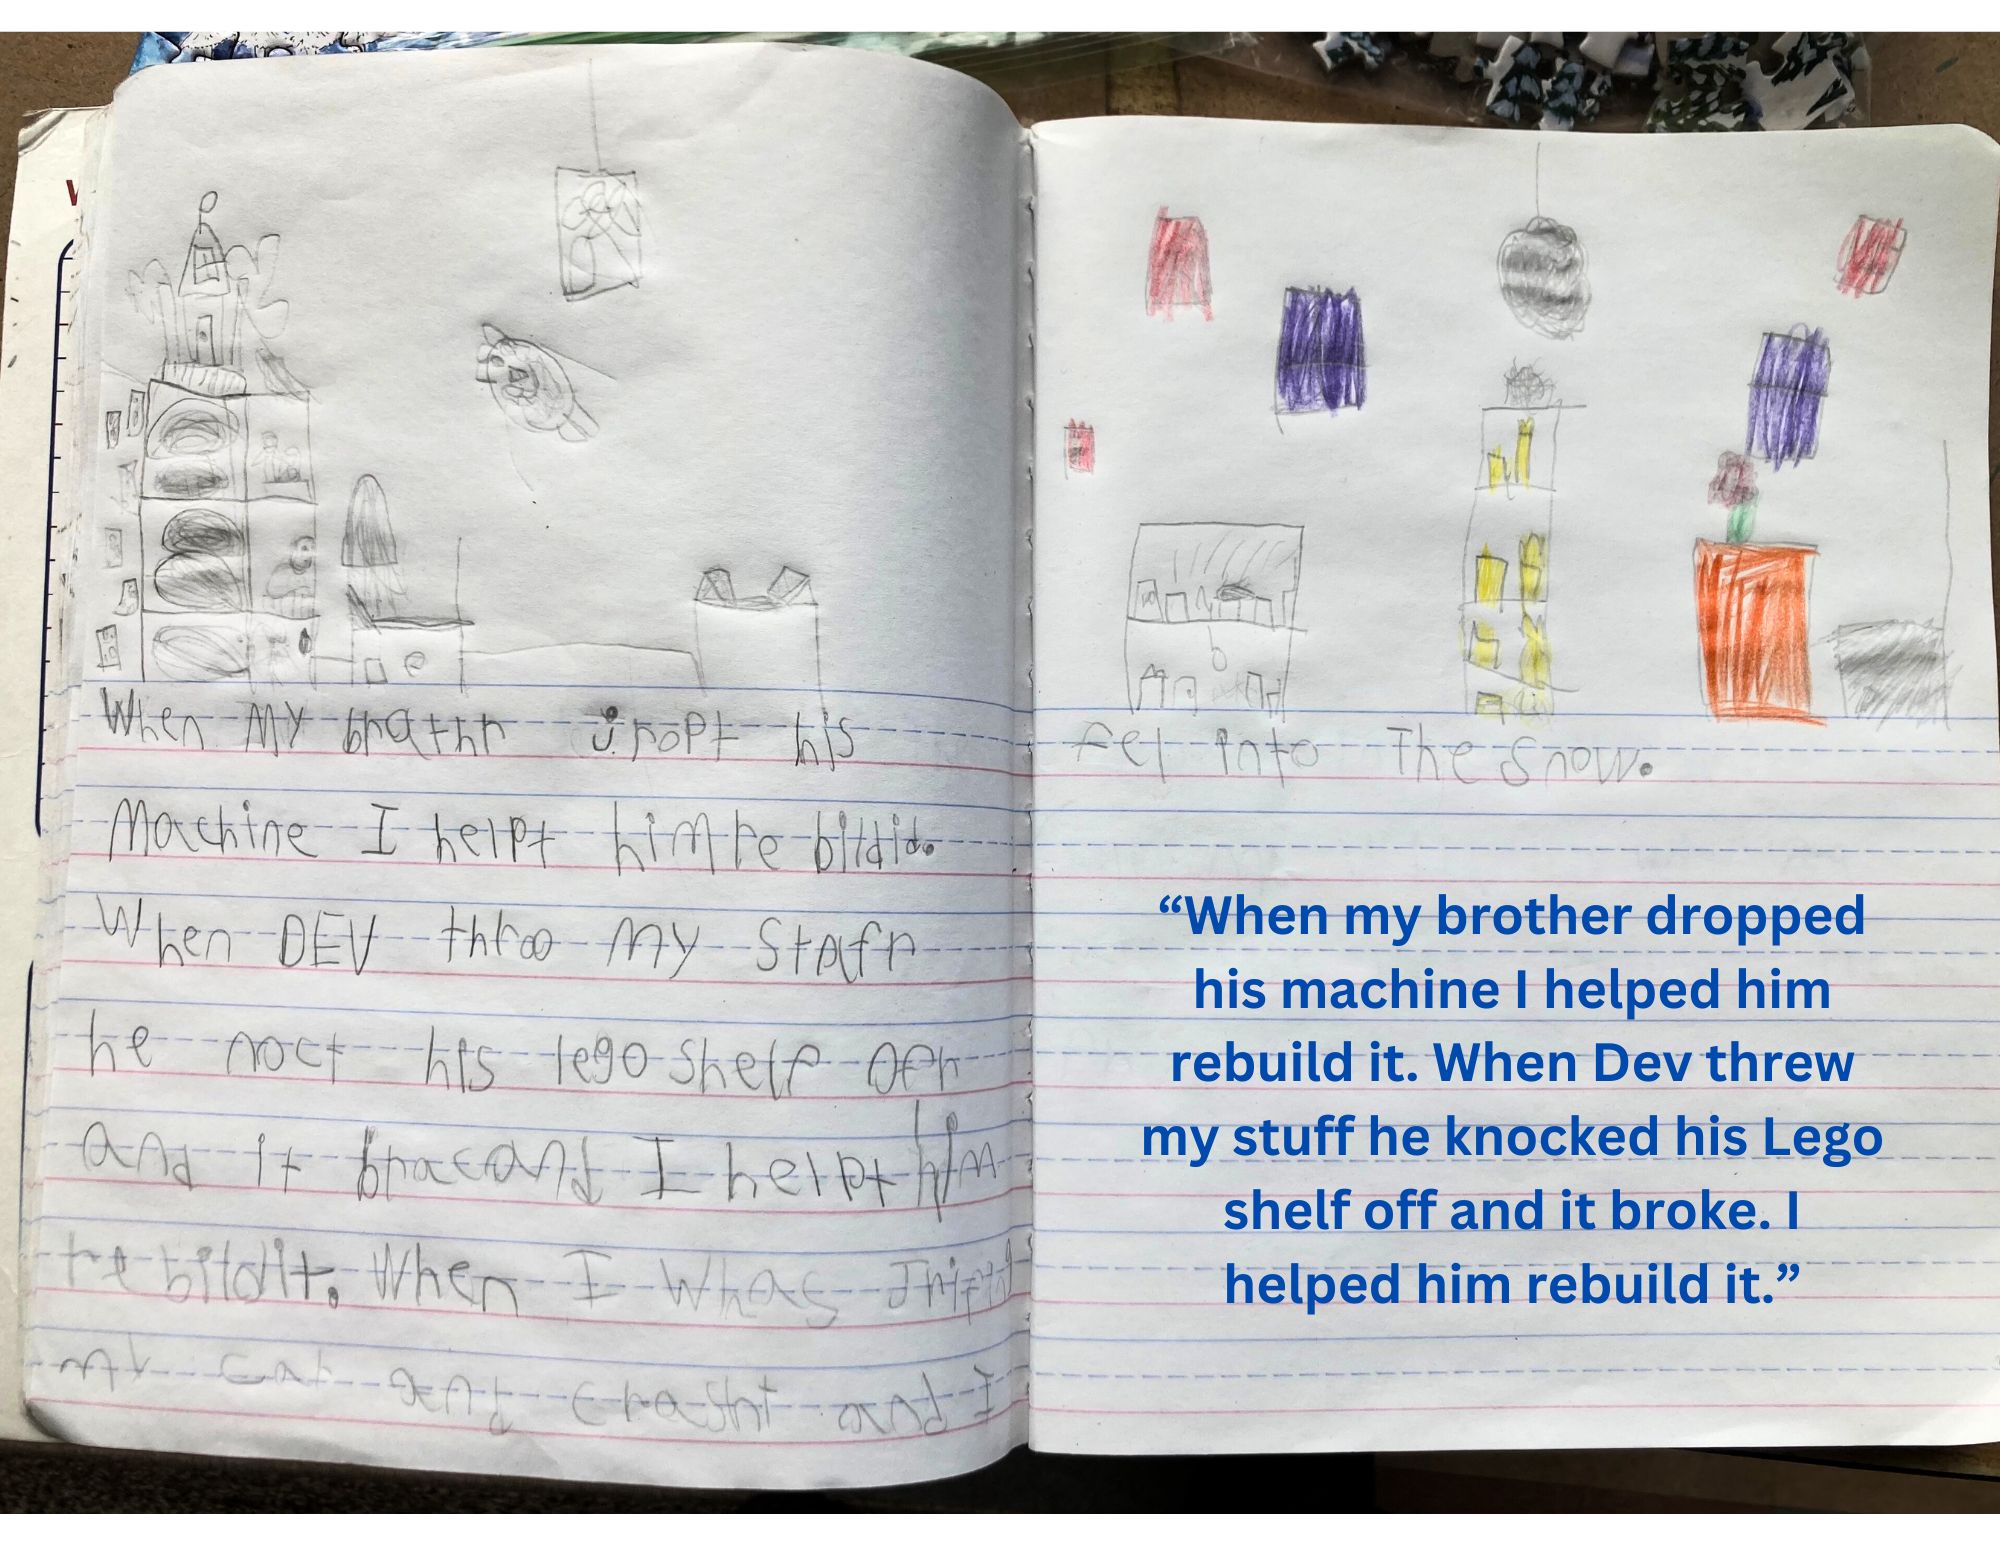 When My brathr dropt his
Machine I helpt him re bildit.
When DEV throo My Stafr
he noct his lego shelf ofr
and it bracand I helpt him
re bildit. When I whas driftd
my car and crasht and I
fel into The Snow.
“When my brother dropped
his machine I helped him
rebuild it. When Dev threw
my stuff he knocked his Lego
shelf off and it broke. I
helped him rebuild it.”